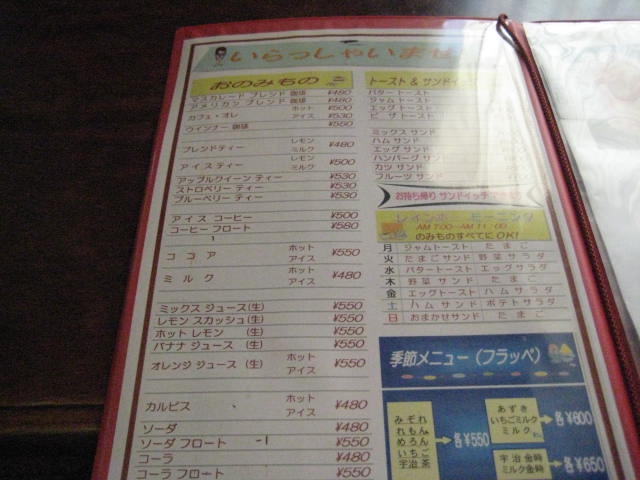 いらっしゃいませ
おのみもの
マスカレード ブレンド 珈琲 ¥480
アメリカン ブレンド 珈琲 ¥480
カフェ・オレ ホット ¥500
アイス ¥530
ウインナー 珈琲 ¥550
ブレンドティー レモン ミルク ¥480
アイスティー レモン ミルク ¥500
アップルクイーン ティー ¥530
ストロベリー ティー ¥530
ブルーベリー ティー ¥530
アイス コーヒー ¥500
コーヒー フロート ¥580
ココア ホット アイス ¥550
ミルク ホット アイス ¥480
ミックス ジュース(生) ¥550
レモン スカッシュ(生) ¥550
ホット レモン (生) ¥550
バナナ ジュース (生) ¥550
オレンジ ジュース (生) ホット アイス ¥550
カルピス ホット アイス ¥480
ソーダ ¥480
ソーダ フロート ¥550
コーラ ¥480
コーラ フロート ¥550
トースト & サンドイッチ
バタートースト
ジャムトースト
エッグトースト
ピザトースト
ミックス サンド
ハム サンド
エッグ サンド
ハンバーグ サンド
カツ サンド
フルーツ サンド
お持ち帰り サンドイッチ
レインボー モーニング
AM 7:00~AM 11:00
のみものすべてにOK!
月 ジャムトースト たまご
火 たまごサンド 野菜サラダ
水 バタートースト エッグサラダ
木 野菜サンド たまご
金 エッグトースト ハムサラダ
土 ハムサンド ポテトサラダ
日 おまかせサンド たまご
季節メニュー (フラッペ)
みぞれ
れもん
めろん
いちご
宇治茶
各¥550
あずき
いちごミルク
ミルク
各¥600
宇治金時
ミルク金時
各¥650